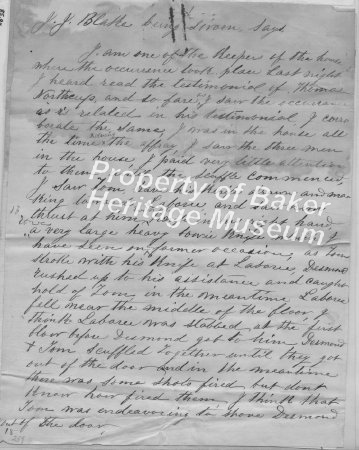 J. J. Blake being Sworn, says
I am one of the Keepers of the house
where the occurence took place last night
I heard read the testimonial of Thomas
Northcup, and so fare I saw the occurance
as is related in his testimonial I coro
borate the same, I was in the house all
the time during the affray, I saw the three men
in the house, I paid very little attention
to them the scuffle commenced,
I saw Tom and ma
king
thrust at him right hand,
a very large heavy bowie Knife
have seen on former occasion, as Tom
stroke with his Knife at Laboree, Desmond
rushed up to his assistance and caught
hold of Tom, in the meantime Laboree
fell near the middle of the floor, I
think Laboree was stabbed at the first
blow before Desmond got to him, Desmond
& Tom scuffled together until they got
out of the door and in the meantime
there was some shots fired, but dont
Know how fired them, I think that
Tom was endeavoring to shove Desmond
out of the door.
Property of Baker
Heritage Museum